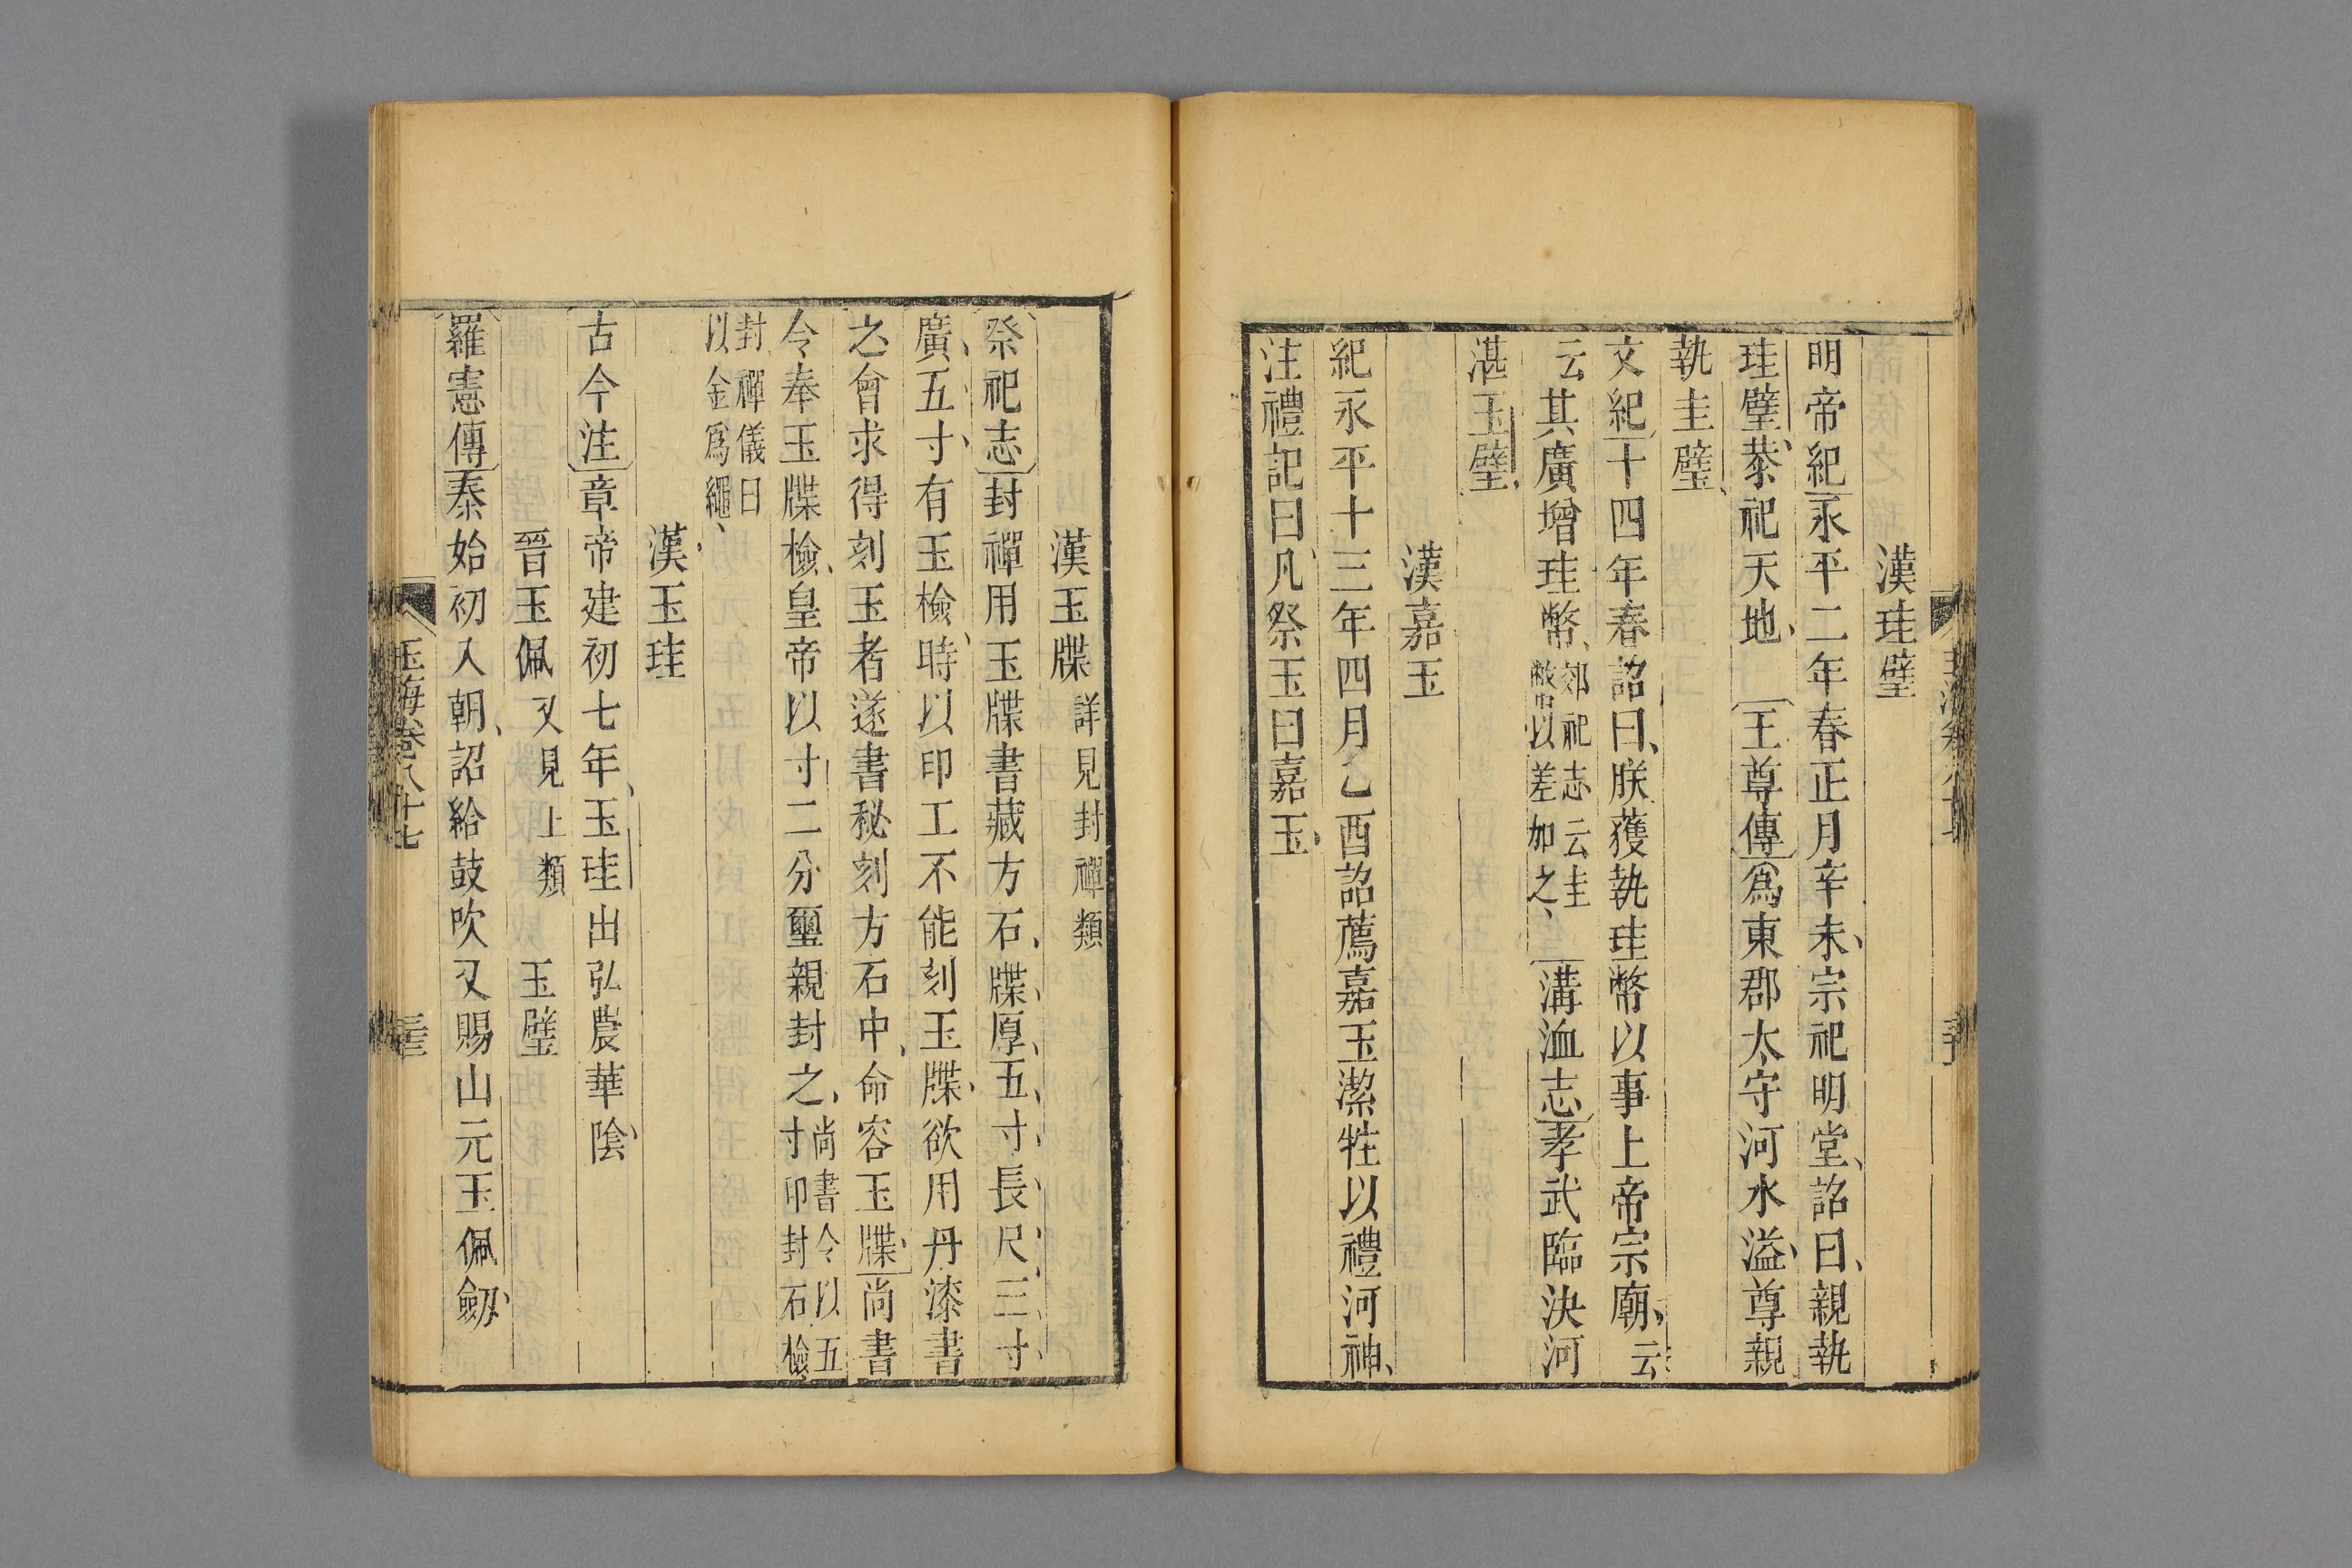 漢珪璧
明帝紀永平二年春正月辛未宗祀明堂詔曰親執
珪璧恭祀天地 王尊傳爲東郡太守河水溢尊親
執圭璧
文紀十四年春詔曰朕獲執珪幣以事上帝宗廟云
云其廣增珪幣郊祀志云圭幣以差加之 溝洫志孝武臨決河
湛玉璧
漢嘉玉
紀永平十三年四月乙酉詔薦嘉玉潔牲以禮河神
注禮記曰凡祭玉曰嘉玉
漢玉牒詳見封禪類
祭祀志封禪用玉牒書藏方石牒厚五寸長尺三寸
廣五寸有玉檢時以印工不能刻玉牒欲用丹漆書
之會求得刻玉者遂書秘刻方石中命容玉牒尚書
令奉玉牒檢皇帝以寸二分璽親封之尚書令以五寸印封石檢
封禪儀曰以金爲繩
漢玉珪
古今注章帝建初七年玉珪出弘農華陰
晉玉佩又見上類 玉璧
羅憲傳泰始初入朝詔給鼓吹又賜山元玉佩劒
玉海卷八十七